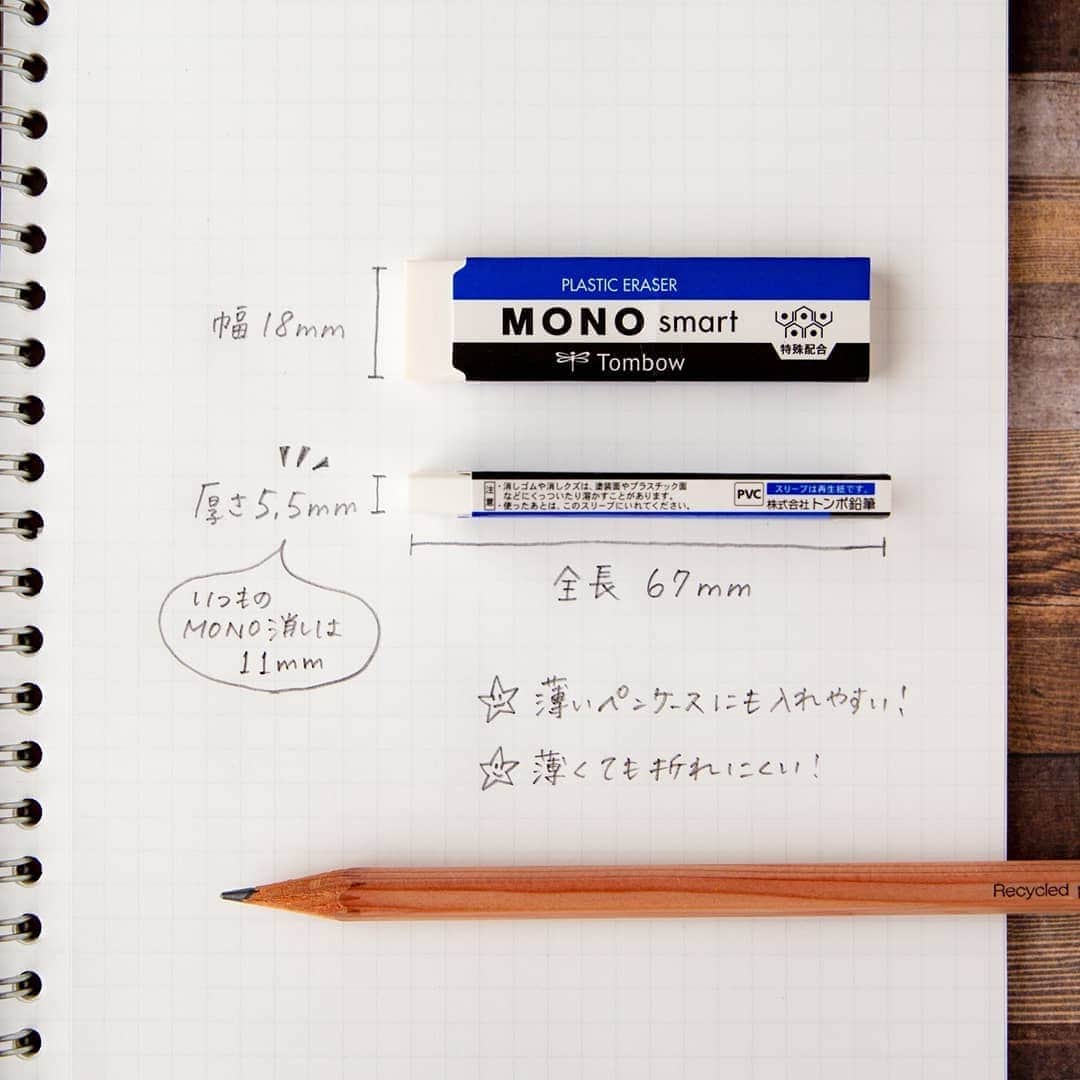 PLASTIC ERASER
MONO smart
特殊配合
Tombow
幅 18mm
厚さ5.5mm
注意
・消しゴムや消しクズは、塗装面やプラスチック面
などにくっついたり溶かすことがあります。
・使ったあとは、このスリーブにいれてください。
PVC
スリーブは再生紙です。
株式会社トンボ鉛筆
全長 67mm
いつもの
MONO消しは
11mm
薄いペンケースにも入れやすい!
薄くても折れにくい!
Recycled